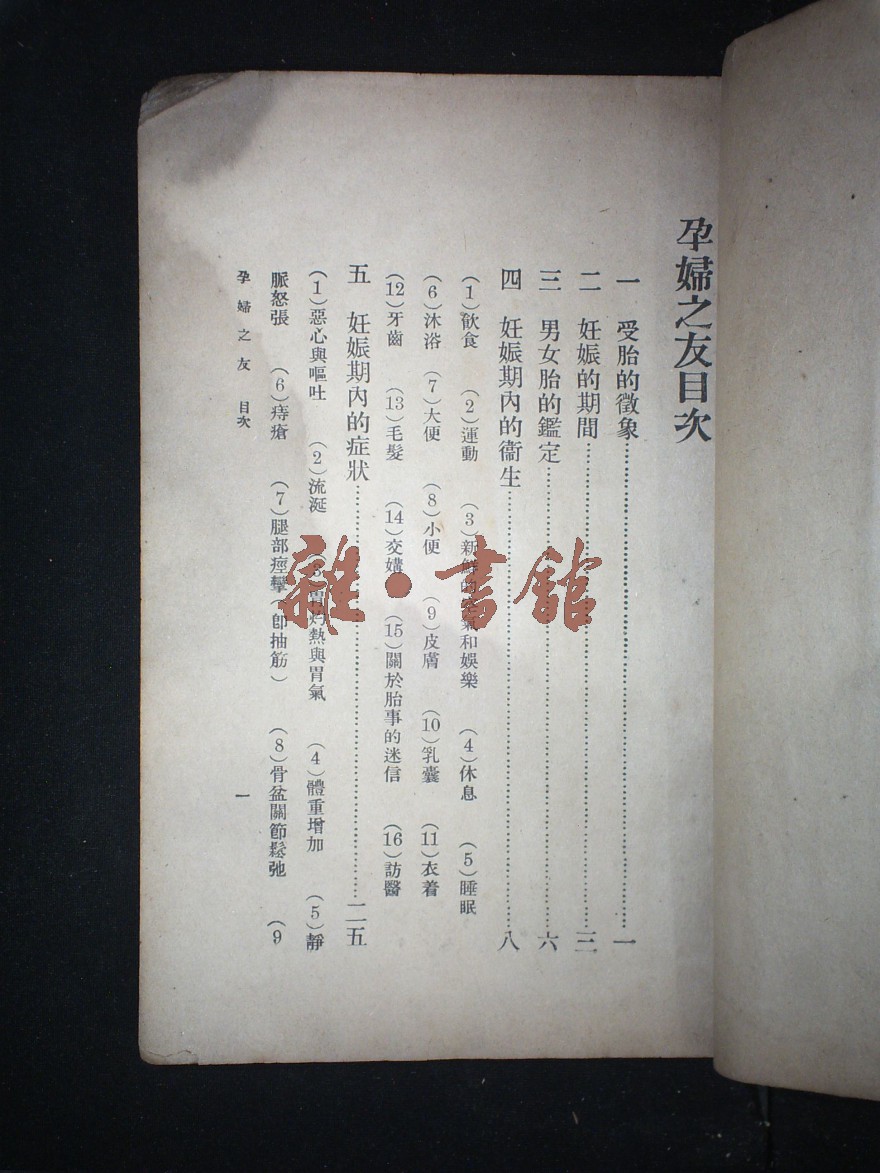 孕婦之友目次
一 受胎的徵象……一
二 妊娠的期間……三
三 男女胎的鑑定……六
四 妊娠期內的衞生……八
(1)飮食 (2)運動 (3)新鮮的空氣和娛樂 (4)休息 (5)睡眠
(6)沐浴 (7)大便 (8)小便 (9)皮膚 (10)乳囊 (11)衣着
(12)牙齒 (13)毛髮 (14)交媾 (15)關於胎事的迷信 (16)訪醫
五 妊娠期內的症狀……二五
(1)惡心與嘔吐 (2)流涎 (3)胃灼熱與胃氣 (4)體重增加 (5)靜
脈怒張 (6)痔瘡 (7)腿部痙攣(卽抽筋) (8)骨盆關節鬆弛 (9
孕婦之友 目次
一
雜·書館